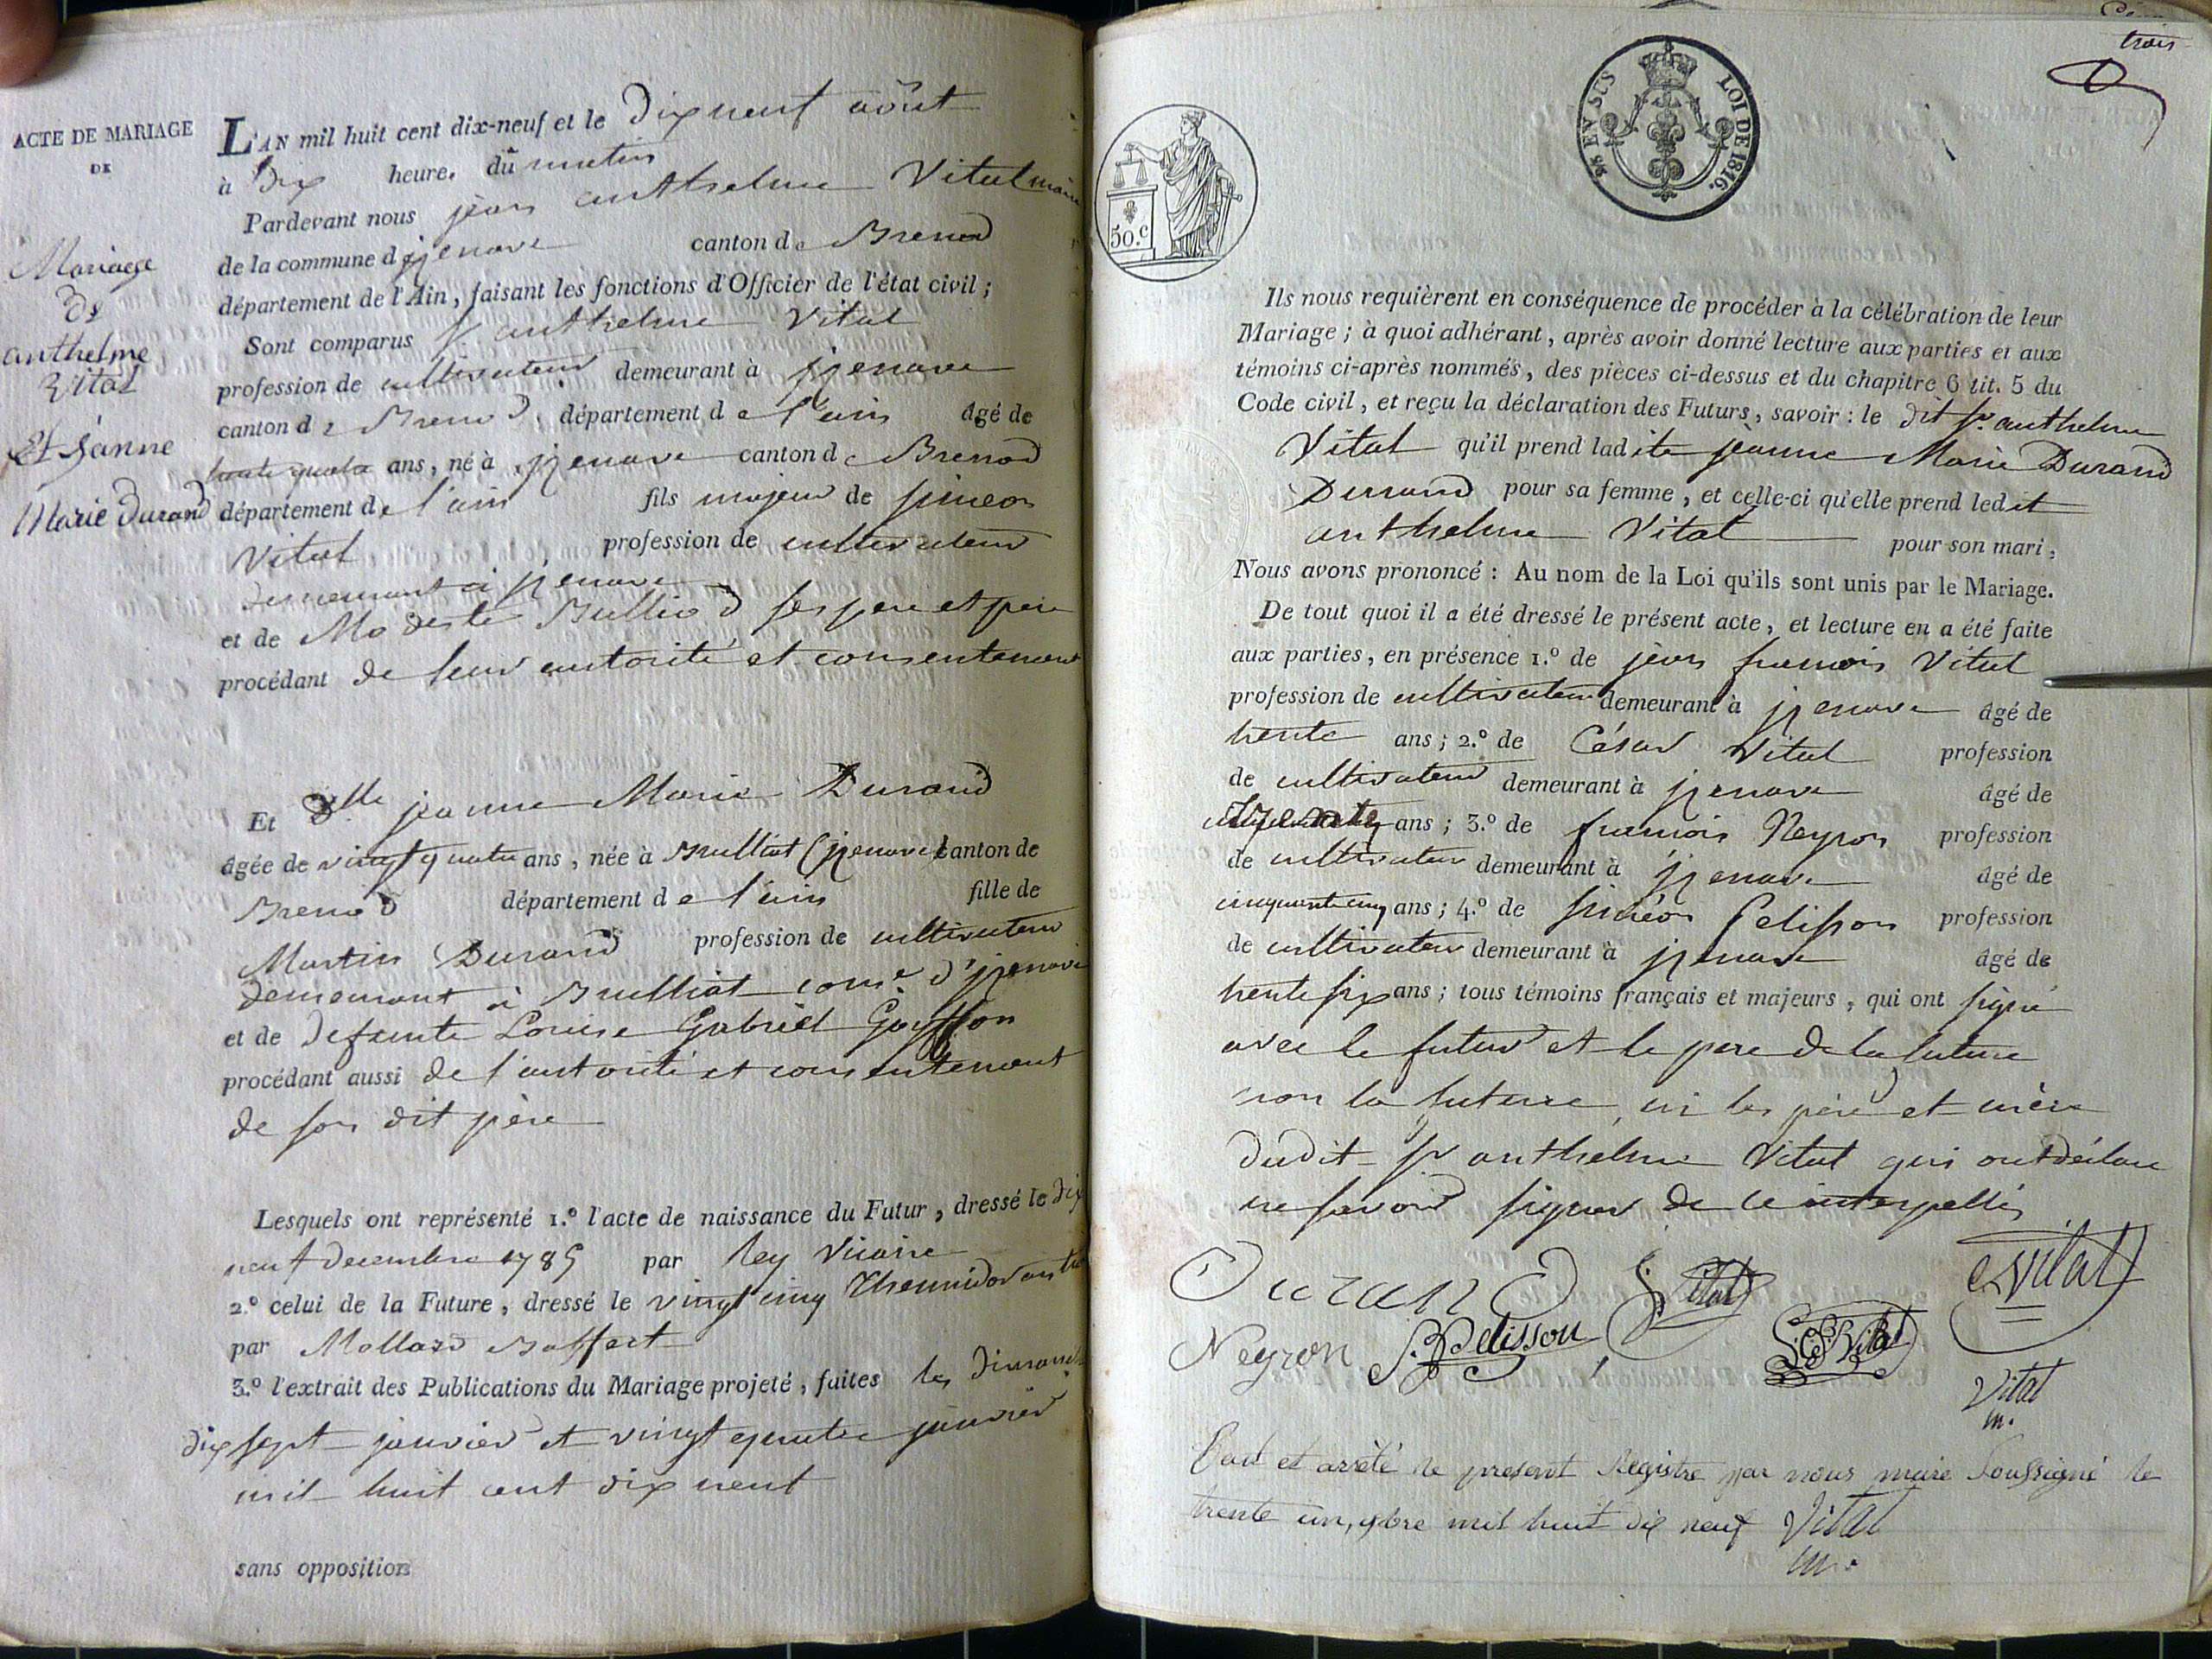 ACTE DE MARIAGE
DE
Mariage
de
anthelme
Vital
Et Jeanne
Marie Durand
L'AN mil huit cent dix-neuf et le dix neuf août
à Dix heure. du matin
Pardevant nous jean anthelme Vital maire
de la commune d izenave canton de Brenod
département de l'Ain, faisant les fonctions d'Officier de l'état civil ;
Sont comparus Sr anthelme Vital
profession de cultivateur demeurant à izenave
canton de Brenod, département de l'ain âgé de
trente quatre ans, né à izenave canton de Brenod
département de l'ain fils majeur de simeon
Vital profession de cultivateur
demeurant à izenave
et de Modeste Bulliod ses pere et pere
procédant de leur autorité et consentement
Et dlle jeanne Marie Durand
âgée de vingt quatre ans, née à (izenave) canton de
Brenod département de l'ain fille de
Martin Durand profession de cultivateur
demeurant à com.e d'izenave
et de defunte Louise Gabriel
procédant aussi de l'autorité et consentement
de son dit père
Lesquels ont représenté 1.º l'acte de naissance du Futur, dressé le dix
neuf decembre 1785 par Rey Vicaire
2.º celui de la Future, dressé le vingt cinq Thermidor an
par Mollard
3.º l'extrait des Publications du Mariage projeté, faites les
dix sept janvier et vingt quatre janvier
mil huit cent dix neuf
sans opposition
trois
EN SUS
LOI DE 1816.
50.c
Ils nous requièrent en conséquence de procéder à la célébration de leur
Mariage ; à quoi adhérant, après avoir donné lecture aux parties et aux
témoins ci-après nommés, des pièces ci-dessus et du chapitre 6 tit. 5 du
Code civil, et reçu la déclaration des Futurs, savoir : le dit Sr anthelme
Vital qu'il prend ladite jeanne Marie Durand
Durand pour sa femme, et celle-ci qu'elle prend ledit
anthelme Vital pour son mari,
Nous avons prononcé : Au nom de la Loi qu'ils sont unis par le Mariage.
De tout quoi il a été dressé le présent acte, et lecture en a été faite
aux parties, en présence 1.º de jean francois Vital
profession de cultivateur demeurant à izenave âgé de
trente ans ; 2.º de César Vital profession
de cultivateur demeurant à izenave âgé de
ans ; 3.º de francois Neyron profession
de cultivateur demeurant à izenave âgé de
cinquante cinq ans ; 4.º de siméon Pelisson profession
de cultivateur demeurant à izenave âgé de
trente six ans ; tous témoins français et majeurs, qui ont signé
avec le futur et le pere de la future
non la future, ni les père et mère
dudit Sr anthelme Vital qui ont déclaré
ne savoir signer de ce interpellés
Durand Vital Vital
Neyron Pelisson Vital
Vital
m.
et arrêté le présent Registre par nous maire Soussigné le
trente un, xbre mil huit dix neuf Vital
m.